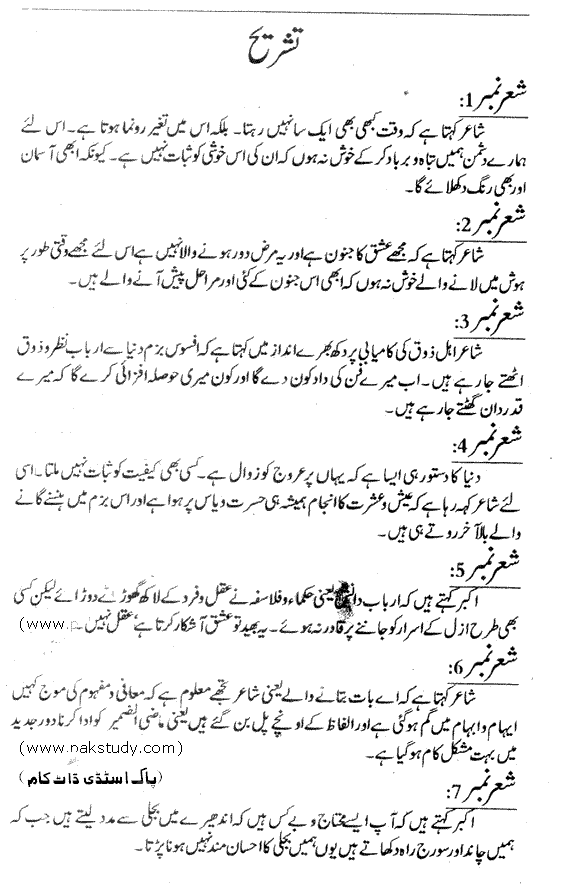 تشریح
شعر نمبر 1:
شاعر کہتا ہے کہ وقت کبھی بھی ایک سا نہیں رہتا۔ بلکہ اس میں تغیر رونما ہوتا ہے۔ اس لئے
ہمارے دشمن ہمیں تباہ و برباد کر کے خوش نہ ہوں کہ ان کی اس خوشی کو ثبات نہیں ہے۔ کیونکہ ابھی آسمان
اور بھی رنگ دکھلائے گا۔
شعر نمبر 2:
شاعر کہتا ہے کہ مجھے عشق کا جنون ہے اور یہ مرض دور ہونے والا نہیں ہے اس لئے مجھے وقتی طور پر
ہوش میں لانے والے خوش نہ ہوں کہ ابھی اس جنون کے کئی اور مراحل پیش آنے والے ہیں۔
شعر نمبر 3:
شاعر اہل ذوق کی کامیابی پر دکھ بھرے انداز میں کہتا ہے کہ افسوس بزم دنیا سے ارباب نظر و ذوق
اٹھتے جا رہے ہیں۔ اب میرے فن کی داد کون دے گا اور کون میری حوصلہ افزائی کرے گا کہ میرے
قدردان گھٹتے جا رہے ہیں۔
شعر نمبر 4:
دنیا کا دستور ہی ایسا ہے کہ یہاں پر عروج کو زوال ہے۔ کسی بھی کیفیت کو ثبات نہیں ملتا۔ اسی
لئے شاعر کہہ رہا ہے کہ عیش و عشرت کا انجام ہمیشہ ہی حسرت و یاس پر ہوا ہے اور اس بزم میں ہنسنے گانے
والے بالآخر روتے ہی ہیں۔
شعر نمبر 5:
اکبر کہتے ہیں کہ ارباب دانش یعنی حکماء و فلاسفہ نے عقل و خرد کے لاکھ گھوڑے دوڑائے لیکن کسی
بھی طرح ازل کے اسرار کو جاننے پر قادر نہ ہوئے۔ یہ بھید تو عشق آشکار کرتا ہے، عقل نہیں۔ (www.p
شعر نمبر 6:
شاعر کہتا ہے کہ اے بات بتانے والے یعنی شاعر تجھے معلوم ہے کہ معافی و مفہوم کی موج کہیں
ایہام و ابہام میں گم ہو گئی ہے اور الفاظ کے اونچے پل بن گئے ہیں یعنی ماضی الضمیر کو ادا کرنا دور جدید
میں بہت مشکل کام ہو گیا ہے۔ (www.nakstudy.com)
(پاک اسٹڈی ڈاٹ کام)
شعر نمبر 7:
اکبر کہتے ہیں کہ آپ ایسے محتاج و بے کس ہیں کہ اندھیرے میں بجلی سے مدد لیتے ہیں جب کہ
ہمیں چاند اور سورج راہ دکھاتے ہیں یوں ہمیں بجلی کا احسان مند نہیں ہونا پڑتا۔